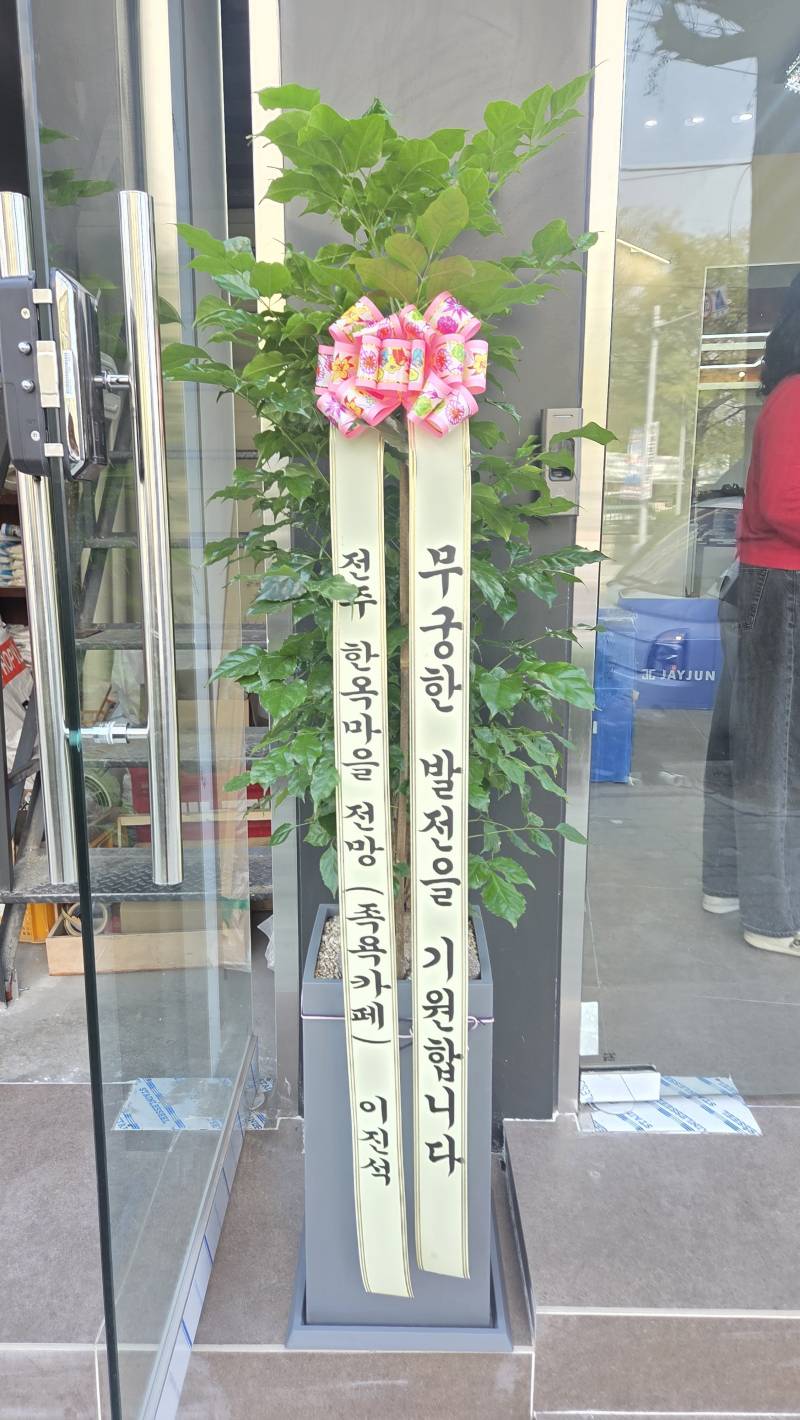 무궁한 발전을 기원합니다
전주 한옥마을 전망 (족욕카페) 이진석
JAYJUN
STAINLESS STEEL